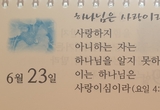 하나님은 사랑이라
사랑하지
아니하는 자는
하나님을 알지 못하
이는 하나님은
사랑이심이라 (요일 4:
6월 23일